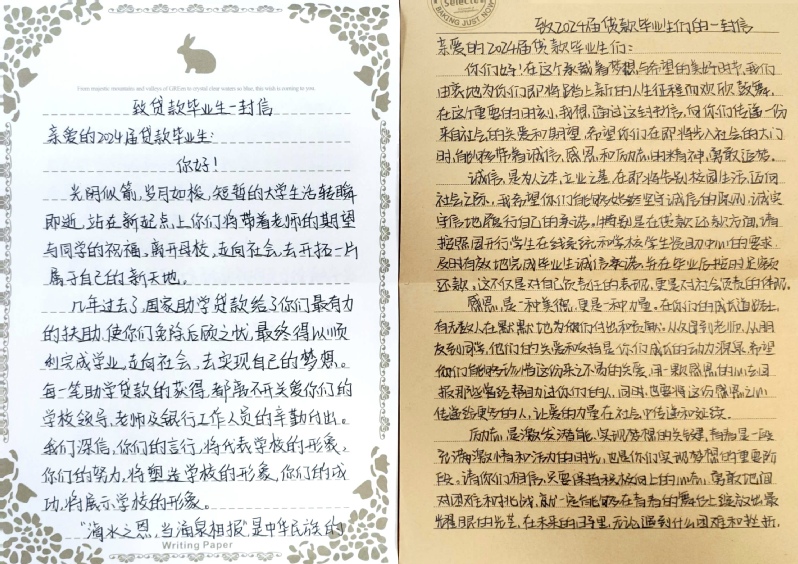 From majestic mountains and valleys of GREen to crystal clear waters so blue, this wish is coming to you.
致贷款毕业生一封信
亲爱的2024届贷款毕业生:
你好!
光阴似箭,岁月如梭,短暂的大学生活转瞬
即逝,站在新起点上你们将带着老师的期望
与同学的祝福,离开母校,走向社会,去开拓一片
属于自己的新天地。
几年过去了,国家助学贷款给了你们最有力
的扶助,使你们免除后顾之忧,最终得以顺
利完成学业,走向社会,去实现自己的梦想。
每一笔助学贷款的获得,都离不开关爱你们的
学校领导、老师及银行工作人员的辛勤付出。
我们深信,你们的言行,将代表学校的形象,
你们的努力,将塑造学校的形象,你们的成
功,将展示学校的形象。
"滴水之恩,当涌泉相报"是中华民族的
Writing Paper
selected
BAKING JUST NOW
致2024届贷款毕业生们的一封信
亲爱的2024届贷款毕业生们:
你们好!在这个承载着梦想与希望的美好时节,我们
由衷地为你们即将踏上新的人生征程而欢欣鼓舞。
在这个重要的时刻,我想通过这封信,向你们传递一份
来自社会的关爱和期望,希望你们在即将步入社会的大门
时,能够带着诚信、感恩和励志的精神,勇敢追梦。
诚信,是为人之本,立业之基。在即将告别校园生活,迈向
社会之际,我希望你们能够始终坚守诚信的原则,诚实
守信地履行自己的承诺。特别是在贷款还款方面,请
按照国开行学生在线系统和学校学生资助中心的要求,
及时有效地完成毕业生诚信承诺,并在毕业后按时足额
还款,这不仅是对自己负责任的表现,更是对社会负责的体现。
感恩,是一种美德,更是一种力量。在你们的成长道路上,
有无数人在默默地为你们付出和奉献,从父母到老师,从朋
友到同学,他们的关爱和支持是你们成长的动力源泉。希望
你们能够珍惜这份来之不易的关爱,用一颗感恩的心去回
报那些曾经帮助过你们的人,同时,也要将这份感恩之心
传递给更多的人,让爱的力量在社会中传递和延续。
励志,是激发潜能,实现梦想的关键。青春是一段
充满激情和活力的时光,也是你们实现梦想的重要阶
段。请你们相信,只要保持积极向上的心态,勇敢地面
对困难和挑战,就一定能够在青春的舞台上绽放出最
耀眼的光芒。在未来的日子里,无论遇到什么困难和挫折,